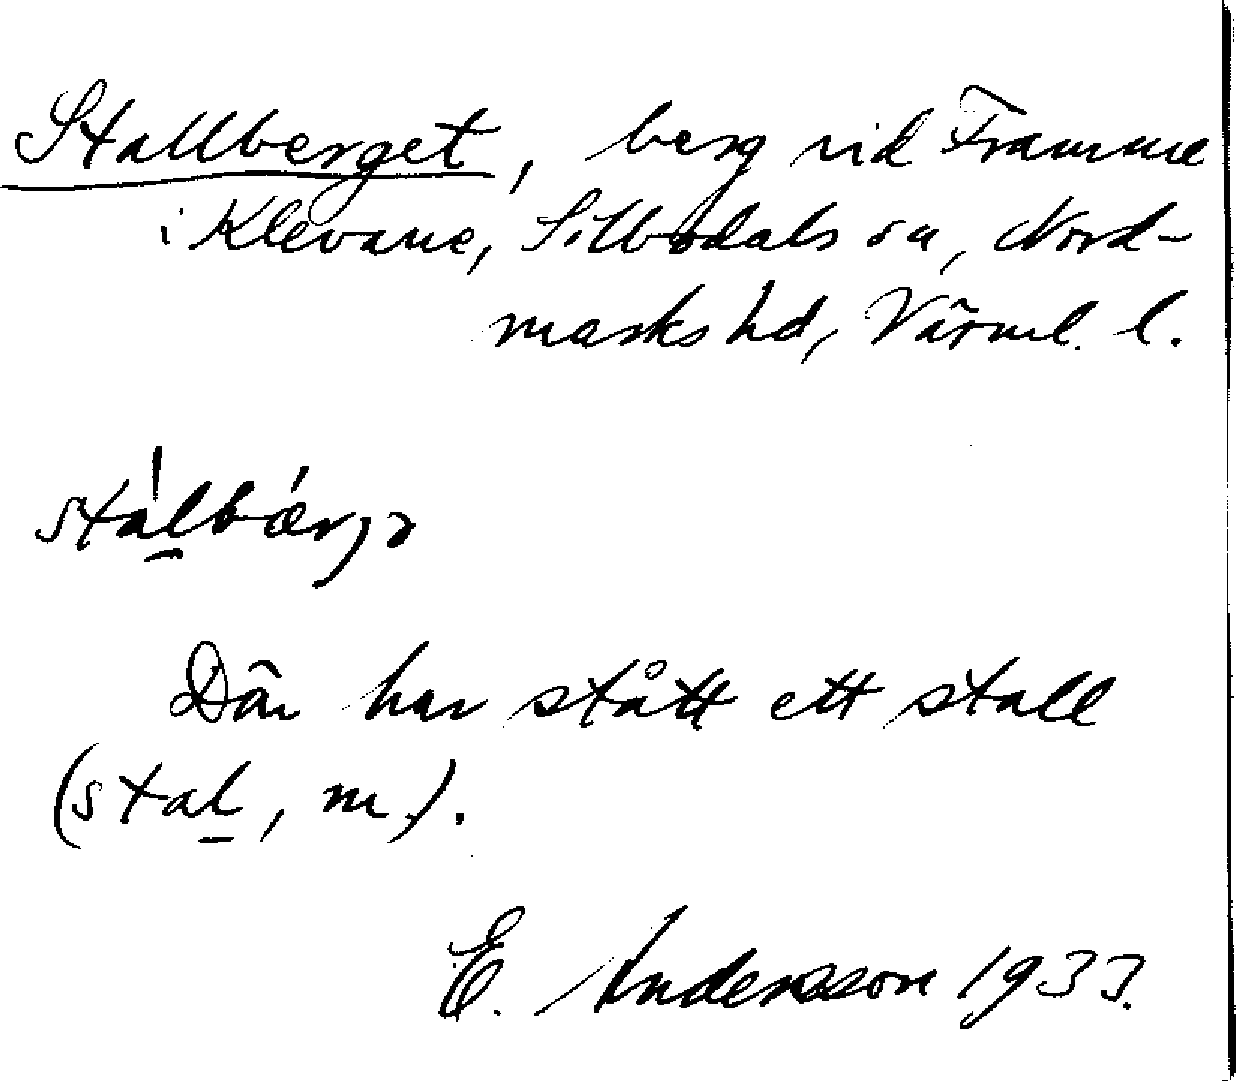 Stallberget, berg vid Framme
i Klevane, Silbodals sn, Nord-
marks hd, Värml. l.
Där har stått ett stall
(stal, m.).
E. Andersson 1933.